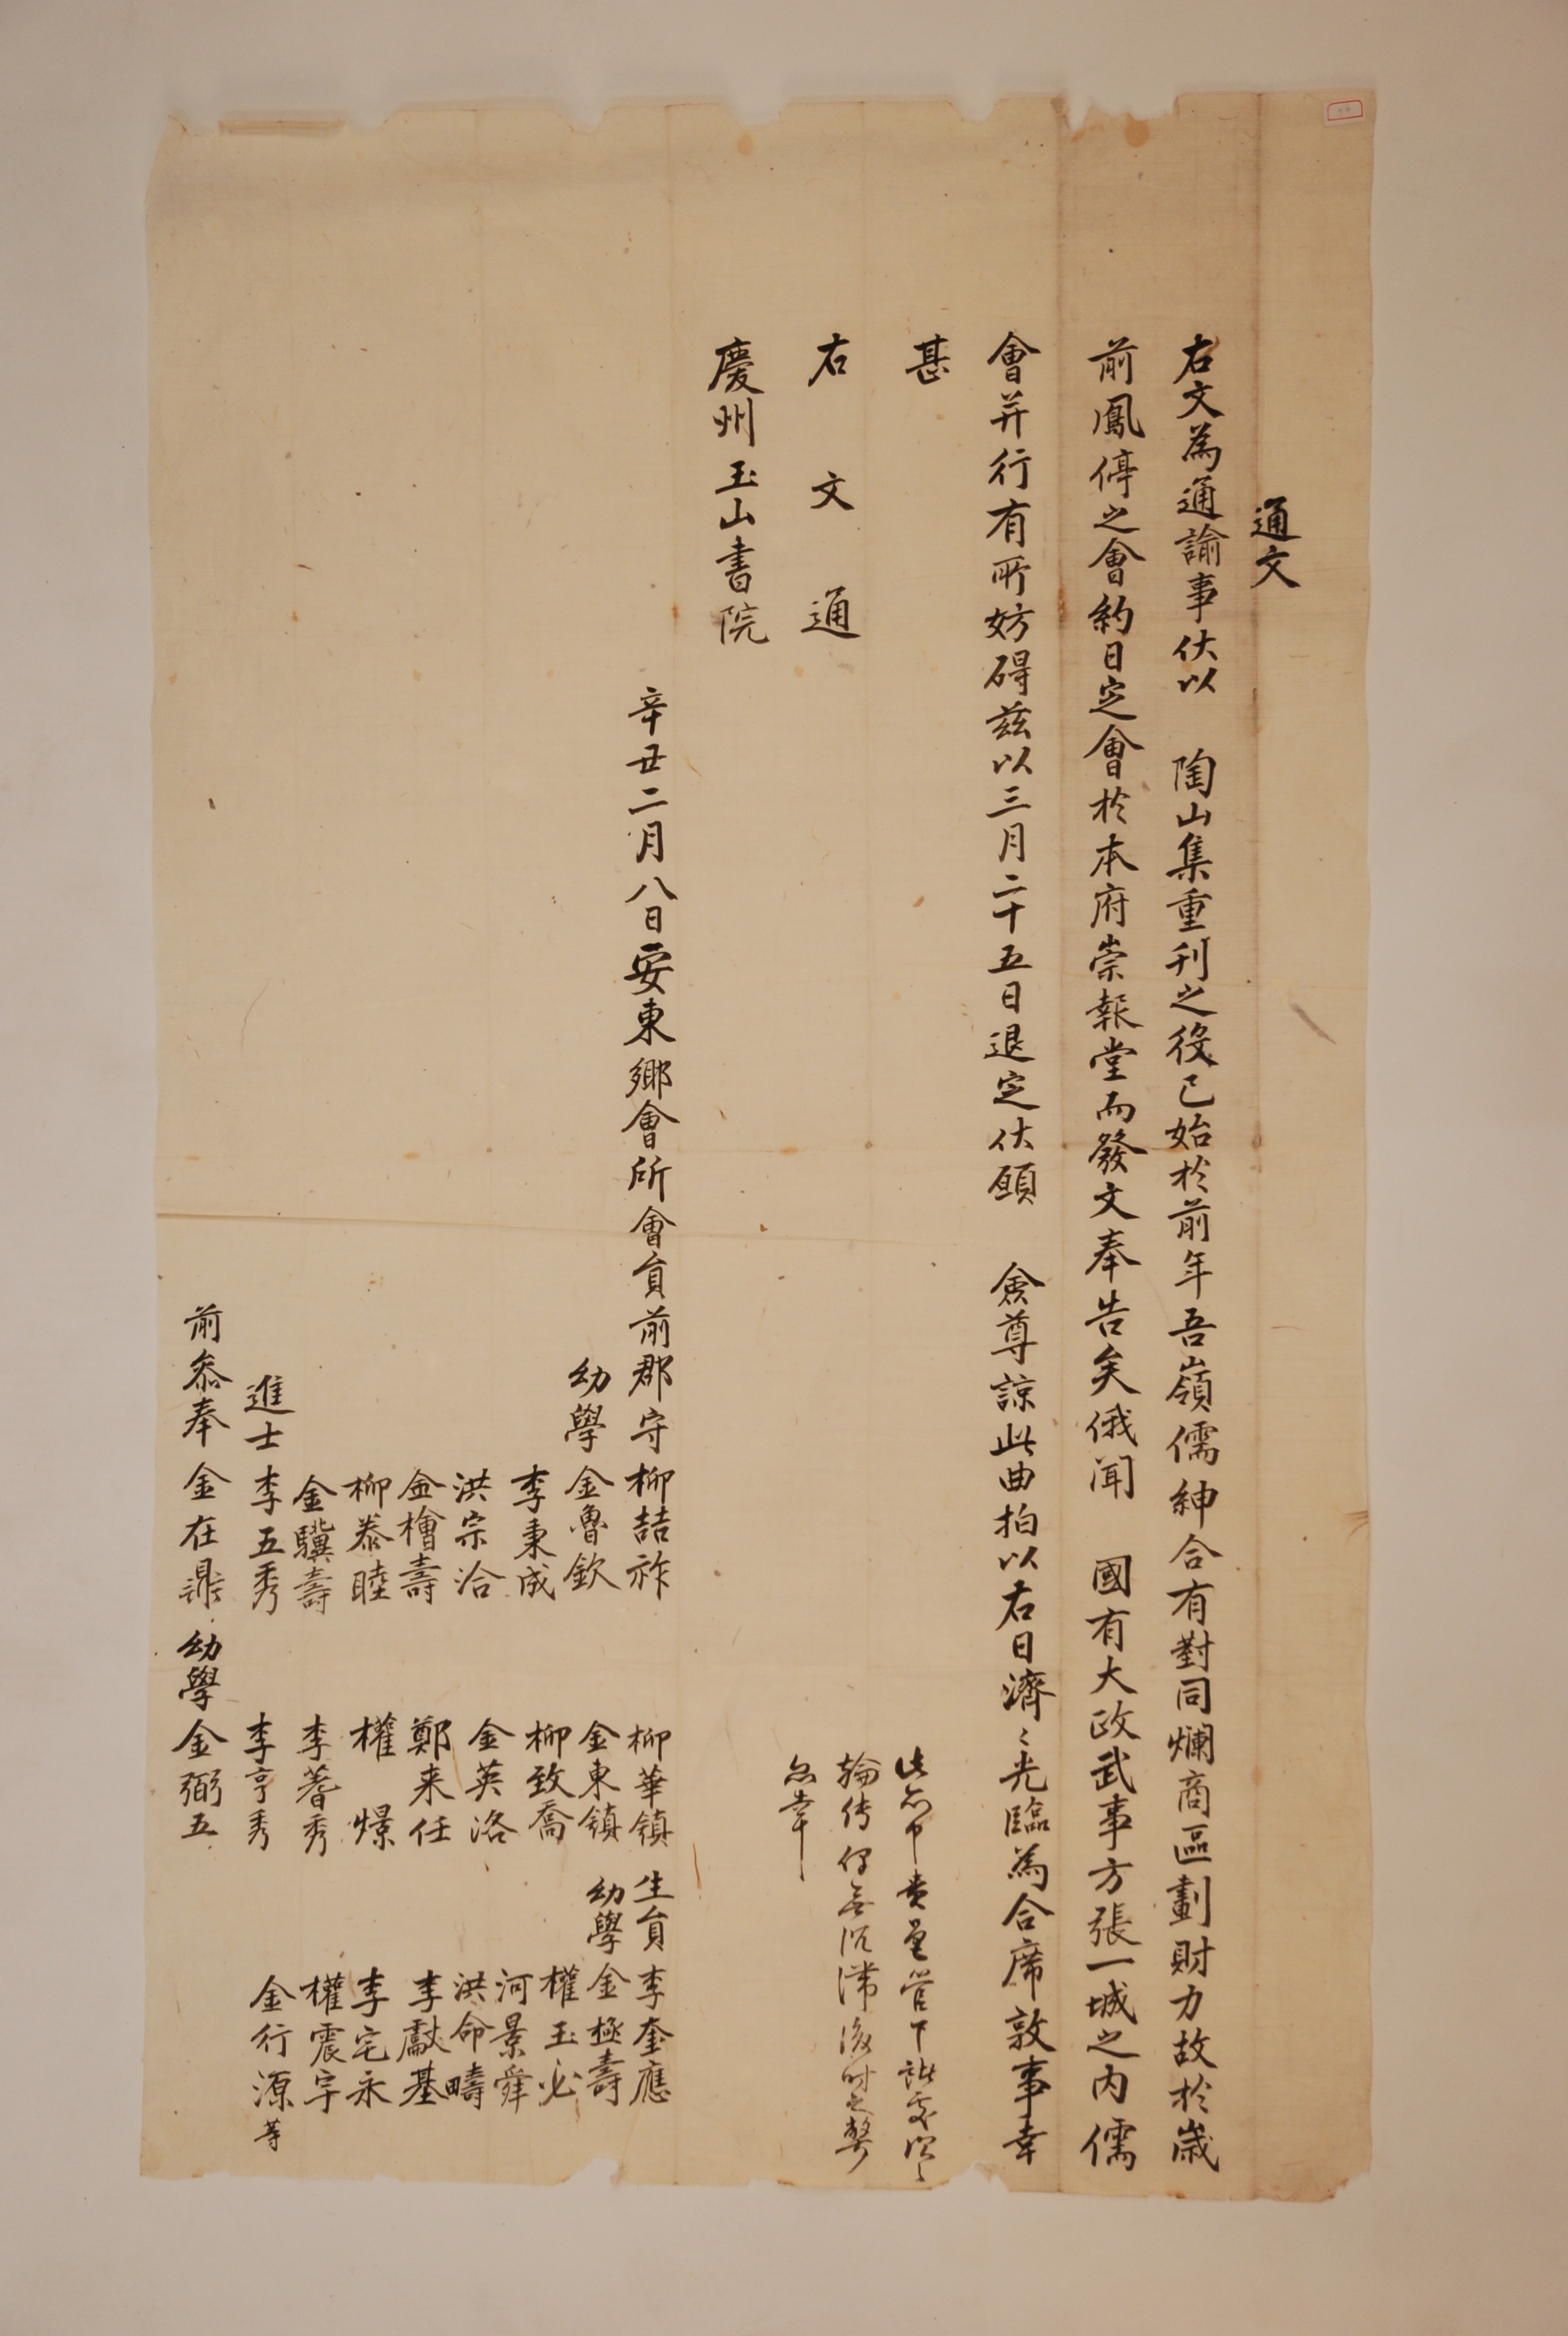 通文
右文為通諭事伏以 陶山集重刊之役已始於前年吾嶺儒紳合有對同爛商區劃財力故於歲
前鳳停之會約日定會於本府崇報堂而發文奉告矣俄聞 國有大政武事方張一城之内儒
會并行有所妨碍玆以三月二十五日退定伏願 僉尊諒此曲拍以右日濟〻光臨為合席敦事幸
甚
此
輪傳 無沉滯後時之弊
為幸
右文通
慶州玉山書院
辛丑二月八日安東鄉會所會員前郡守柳喆祚 柳華鎮 生員李奎應
幼學金魯欽 金東鎮 幼學金極壽
李秉成 柳致喬 權玉必
洪宗洽 金英洛 河景舜
金檜壽 鄭来任 洪命疇
柳泰睦 權憬 李獻基
金驥壽 李蓍秀 李宅永
進士李五秀 李亨秀 權震宇
前叅奉金在鼎 幼學金弼五 金行源等